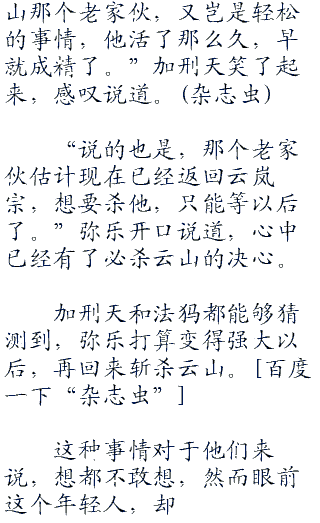 山那个老家伙，又岂是轻松
的事情，他活了那么久，早
就成精了。”加刑天笑了起
来，感叹说道。(杂志虫)
“说的也是，那个老家
伙估计现在已经返回云岚
宗，想要杀他，只能等以后
了。”弥乐开口说道，心中
已经有了必杀云山的决心。
加刑天和法犸都能够猜
测到，弥乐打算变得强大以
后，再回来斩杀云山。[百度
一下“杂志虫”]
这种事情对于他们来
说，想都不敢想，然而眼前
这个年轻人，却